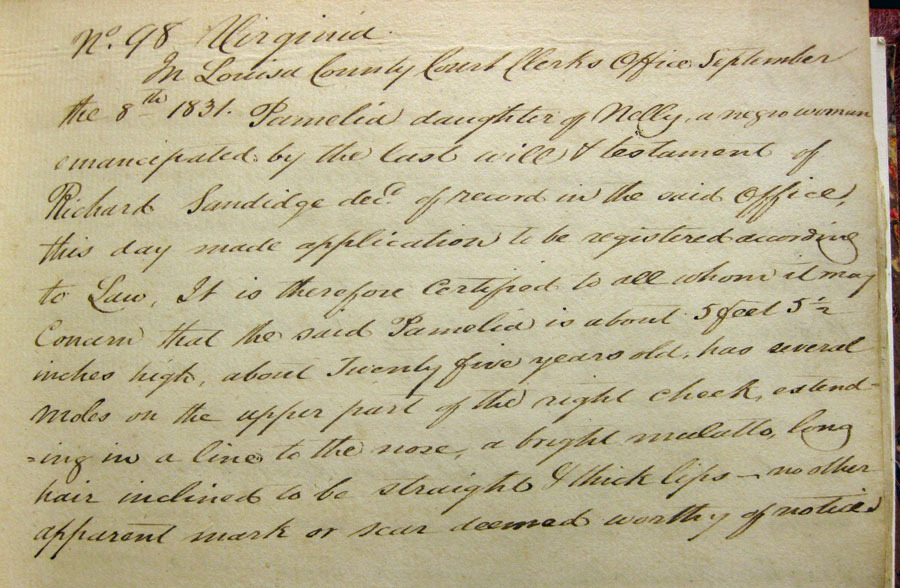 No. 98 Virginia.
In Louisa County Court Clerks Office September
the 8th 1831. Pamelia daughter of Nelly, a negro woman
emancipated by the last will & testament of
Richard Sandidge decd. of record in the said Office,
this day made application to be registered according
to Law, It is therefore Certified to all whom it may
Concern that the said Pamelia is about 5 feet 5 1/2
inches high, about Twenty five years old, has several
moles on the upper part of the right cheek, extend-
-ing in a line to the nose, a bright mulatto, long
hair inclined to be straight & thick lips — no other
apparent mark or scar deemed worthy of notice